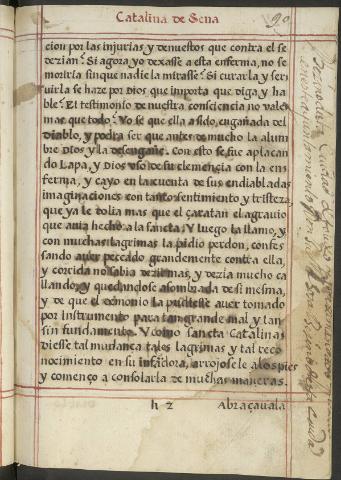 Catalina de Sena
90
cion por las injurias y denuestos que contra el se
dezian? Si agora yo dexasse a esta enferma, no se
moriria sin que nadie la mirasse? Si curarla y ser
uirla se haze por Dios que importa que diga, y ha
ble? El testimonio de nuestra consciencia no vale
mas que todo? Yo se que ella a sido engañada del
diablo, y podra ser que antes de mucho la alum
bre Dios y la desengañe. Con esto se fue aplacan
do Lapa, y Dios vso de su clemencia con la en
ferma, y cayo en la cuenta de sus endiabladas
imaginaciones con tanto sentimiento y tristeza
que ya le dolia mas que el çaratan el agrauio
que auia hecho a la sancta. Y luego la llamo, y
con muchas lagrimas la pidio perdon, confes
sando auer peccado grandemente contra ella,
y corrida no sabia dezir mas, y dezia mucho ca
llando, y quedandose asombrada de si mesma,
y de que el demonio la pudiesse auer tomado
por instrumento para tan grande mal y tan
sin fundamento. Y como sancta Catalina
viesse tal mudança tales lagrimas y tal reco
nocimiento en su infadora, arrojosele a los pies
y començo a consolarla de muchas maneras.
h 2
Abraçauala